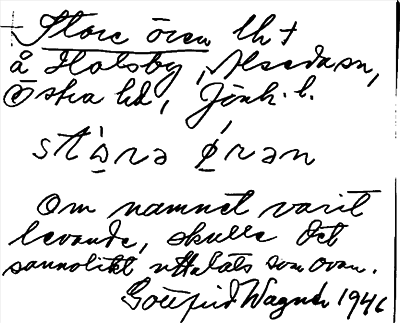 Store ören lh +
å Holsby, Alseda sn,
Östra hd, Jönk. l.
stòra ǿran
Om namnet varit
levande, skulle det
sannolikt uttalats som ovan.
Gottfrid Wagnér 1946